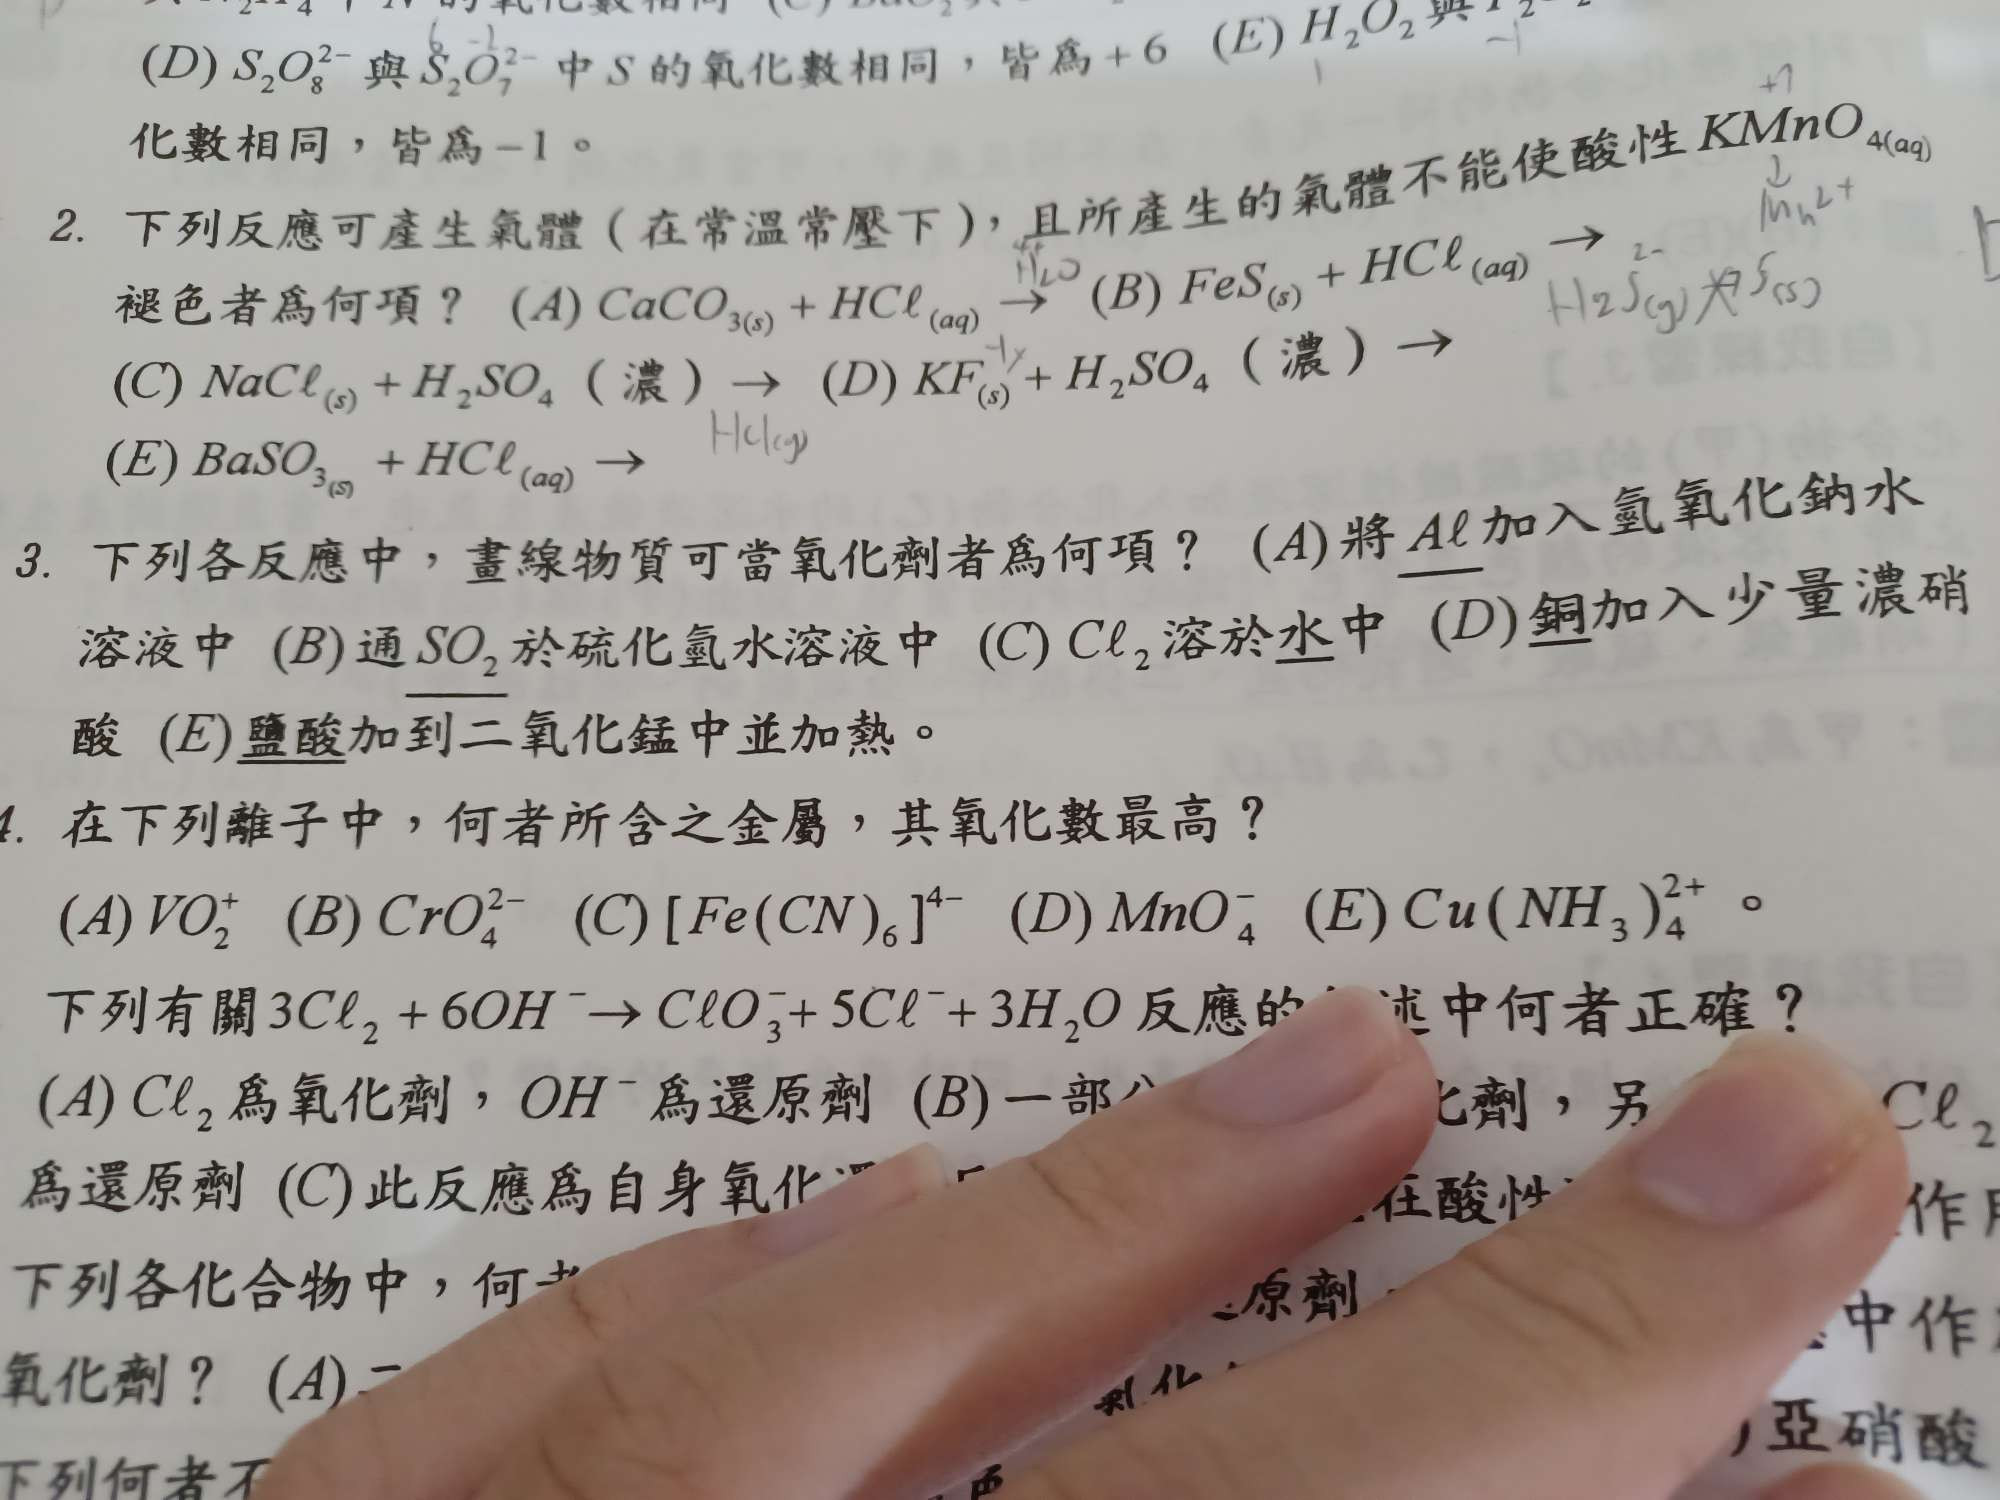 的氧化數相同 (C)
(D) S₂O₈²⁻ 與 S₂O₇²⁻ 中 S 的氧化數相同，皆爲+6 (E) H₂O₂ 與
化數相同，皆爲−1。
2. 下列反應可產生氣體（在常溫常壓下），且所產生的氣體不能使酸性 KMnO₄(aq)
褪色者爲何項？ (A) CaCO₃(s) + HCℓ(aq) → (B) FeS(s) + HCℓ(aq) →
(C) NaCℓ(s) + H₂SO₄（濃）→ (D) KF(s) + H₂SO₄（濃）→
(E) BaSO₃(s) + HCℓ(aq) →
+7
Mn²⁺
H₂O
H₂S(g) S(s)
HCl(g)
3. 下列各反應中，畫線物質可當氧化劑者爲何項？ (A) 將 Aℓ 加入氫氧化鈉水
溶液中 (B) 通 SO₂ 於硫化氫水溶液中 (C) Cℓ₂ 溶於水中 (D) 銅加入少量濃硝
酸 (E) 鹽酸加到二氧化錳中並加熱。
4. 在下列離子中，何者所含之金屬，其氧化數最高？
(A) VO₂⁺ (B) CrO₄²⁻ (C) [Fe(CN)₆]⁴⁻ (D) MnO₄⁻ (E) Cu(NH₃)₄²⁺。
下列有關 3Cℓ₂ + 6OH⁻ → CℓO₃⁻ + 5Cℓ⁻ + 3H₂O 反應的 述中何者正確？
(A) Cℓ₂ 爲氧化劑，OH⁻ 爲還原劑 (B) 一部 化劑，另 Cℓ₂
爲還原劑 (C) 此反應爲自身氧化 在酸性 作用
下列各化合物中，何 原劑 中作
氧化劑？ (A) 二 劑 化
下列何者不 亞硝酸